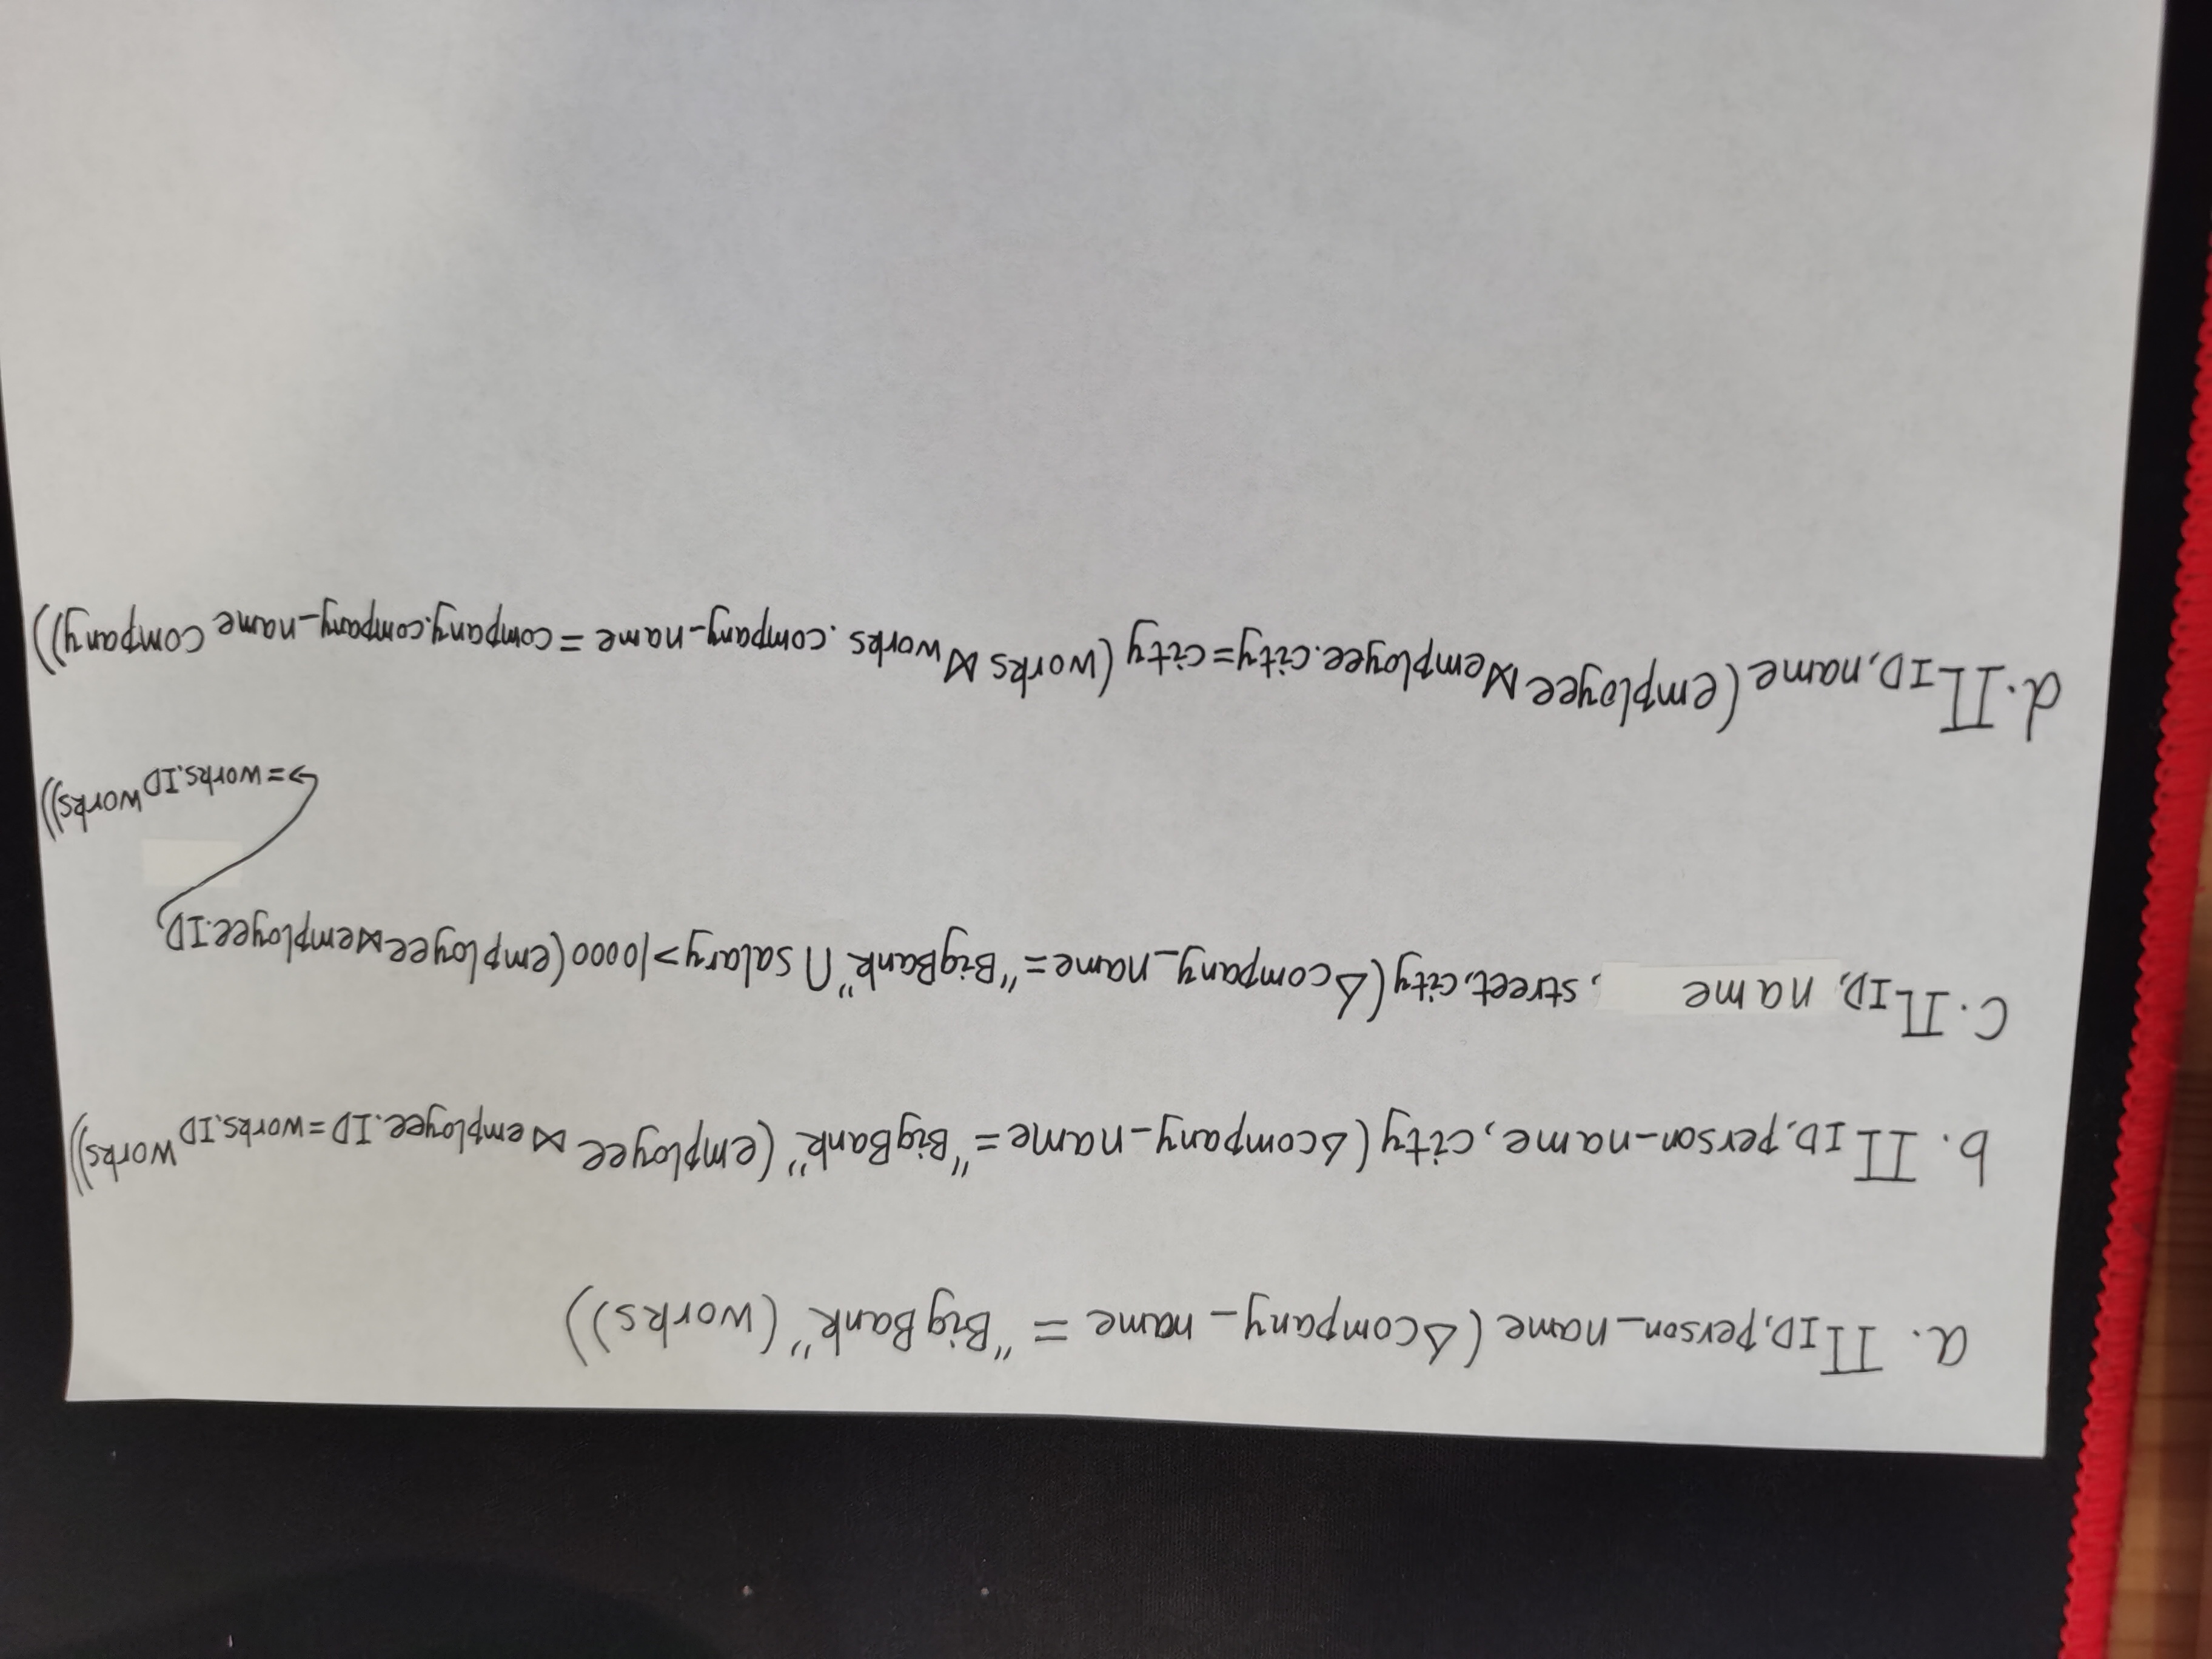 a. ∏ID,person_name(Δcompany_name = "BigBank"(works))
b. ∏ID,person_name,city(Δcompany_name="BigBank"(employee ⋈employee.ID=works.ID works))
C. ∏ID, name , street,city(Δcompany_name="BigBank"∩salary>10000(employee⋈employee.ID
→=works.ID works))
d. ∏ID,name(employee⋈employee.city=city(works⋈works.company_name=company.company_name company))